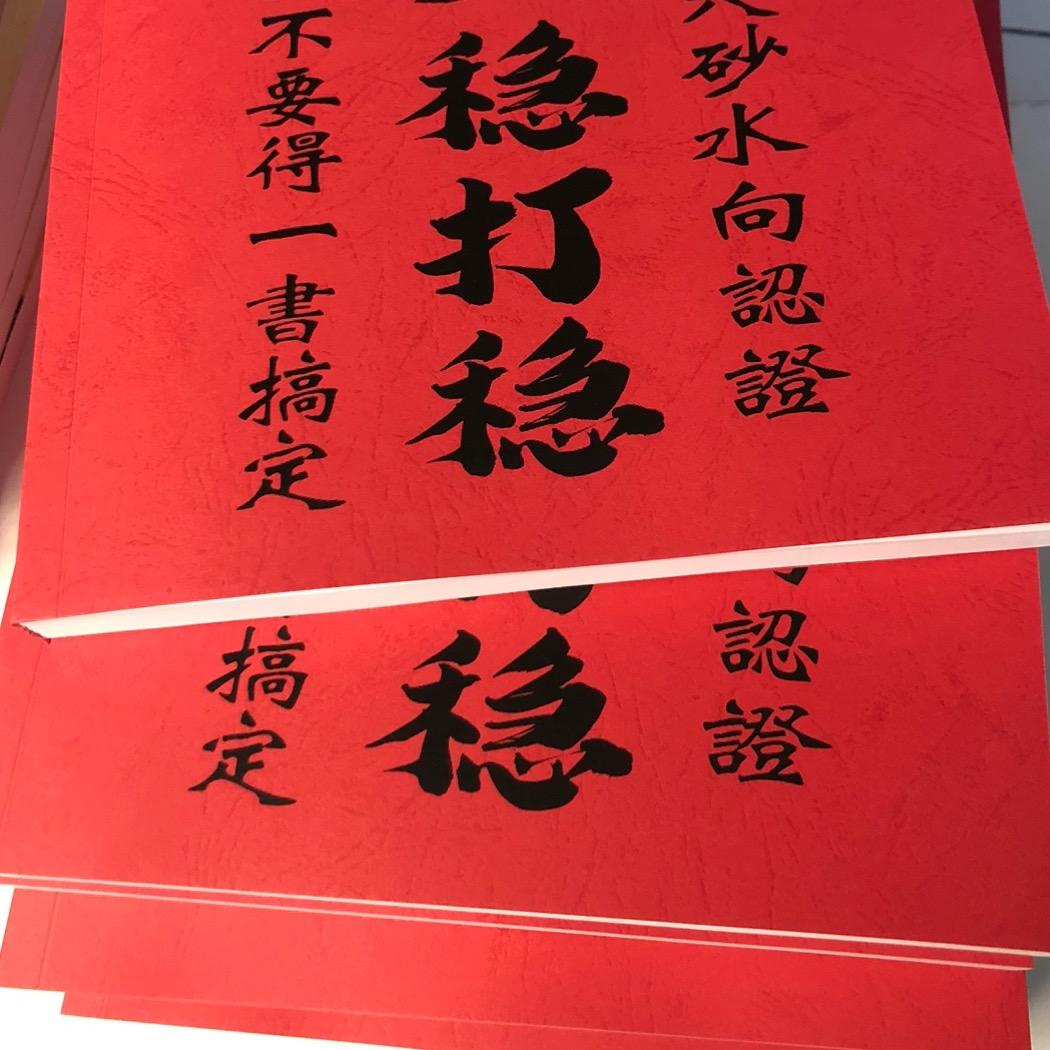 砂水向認證
稳打稳
不要得一書搞定
認證
稳
搞定